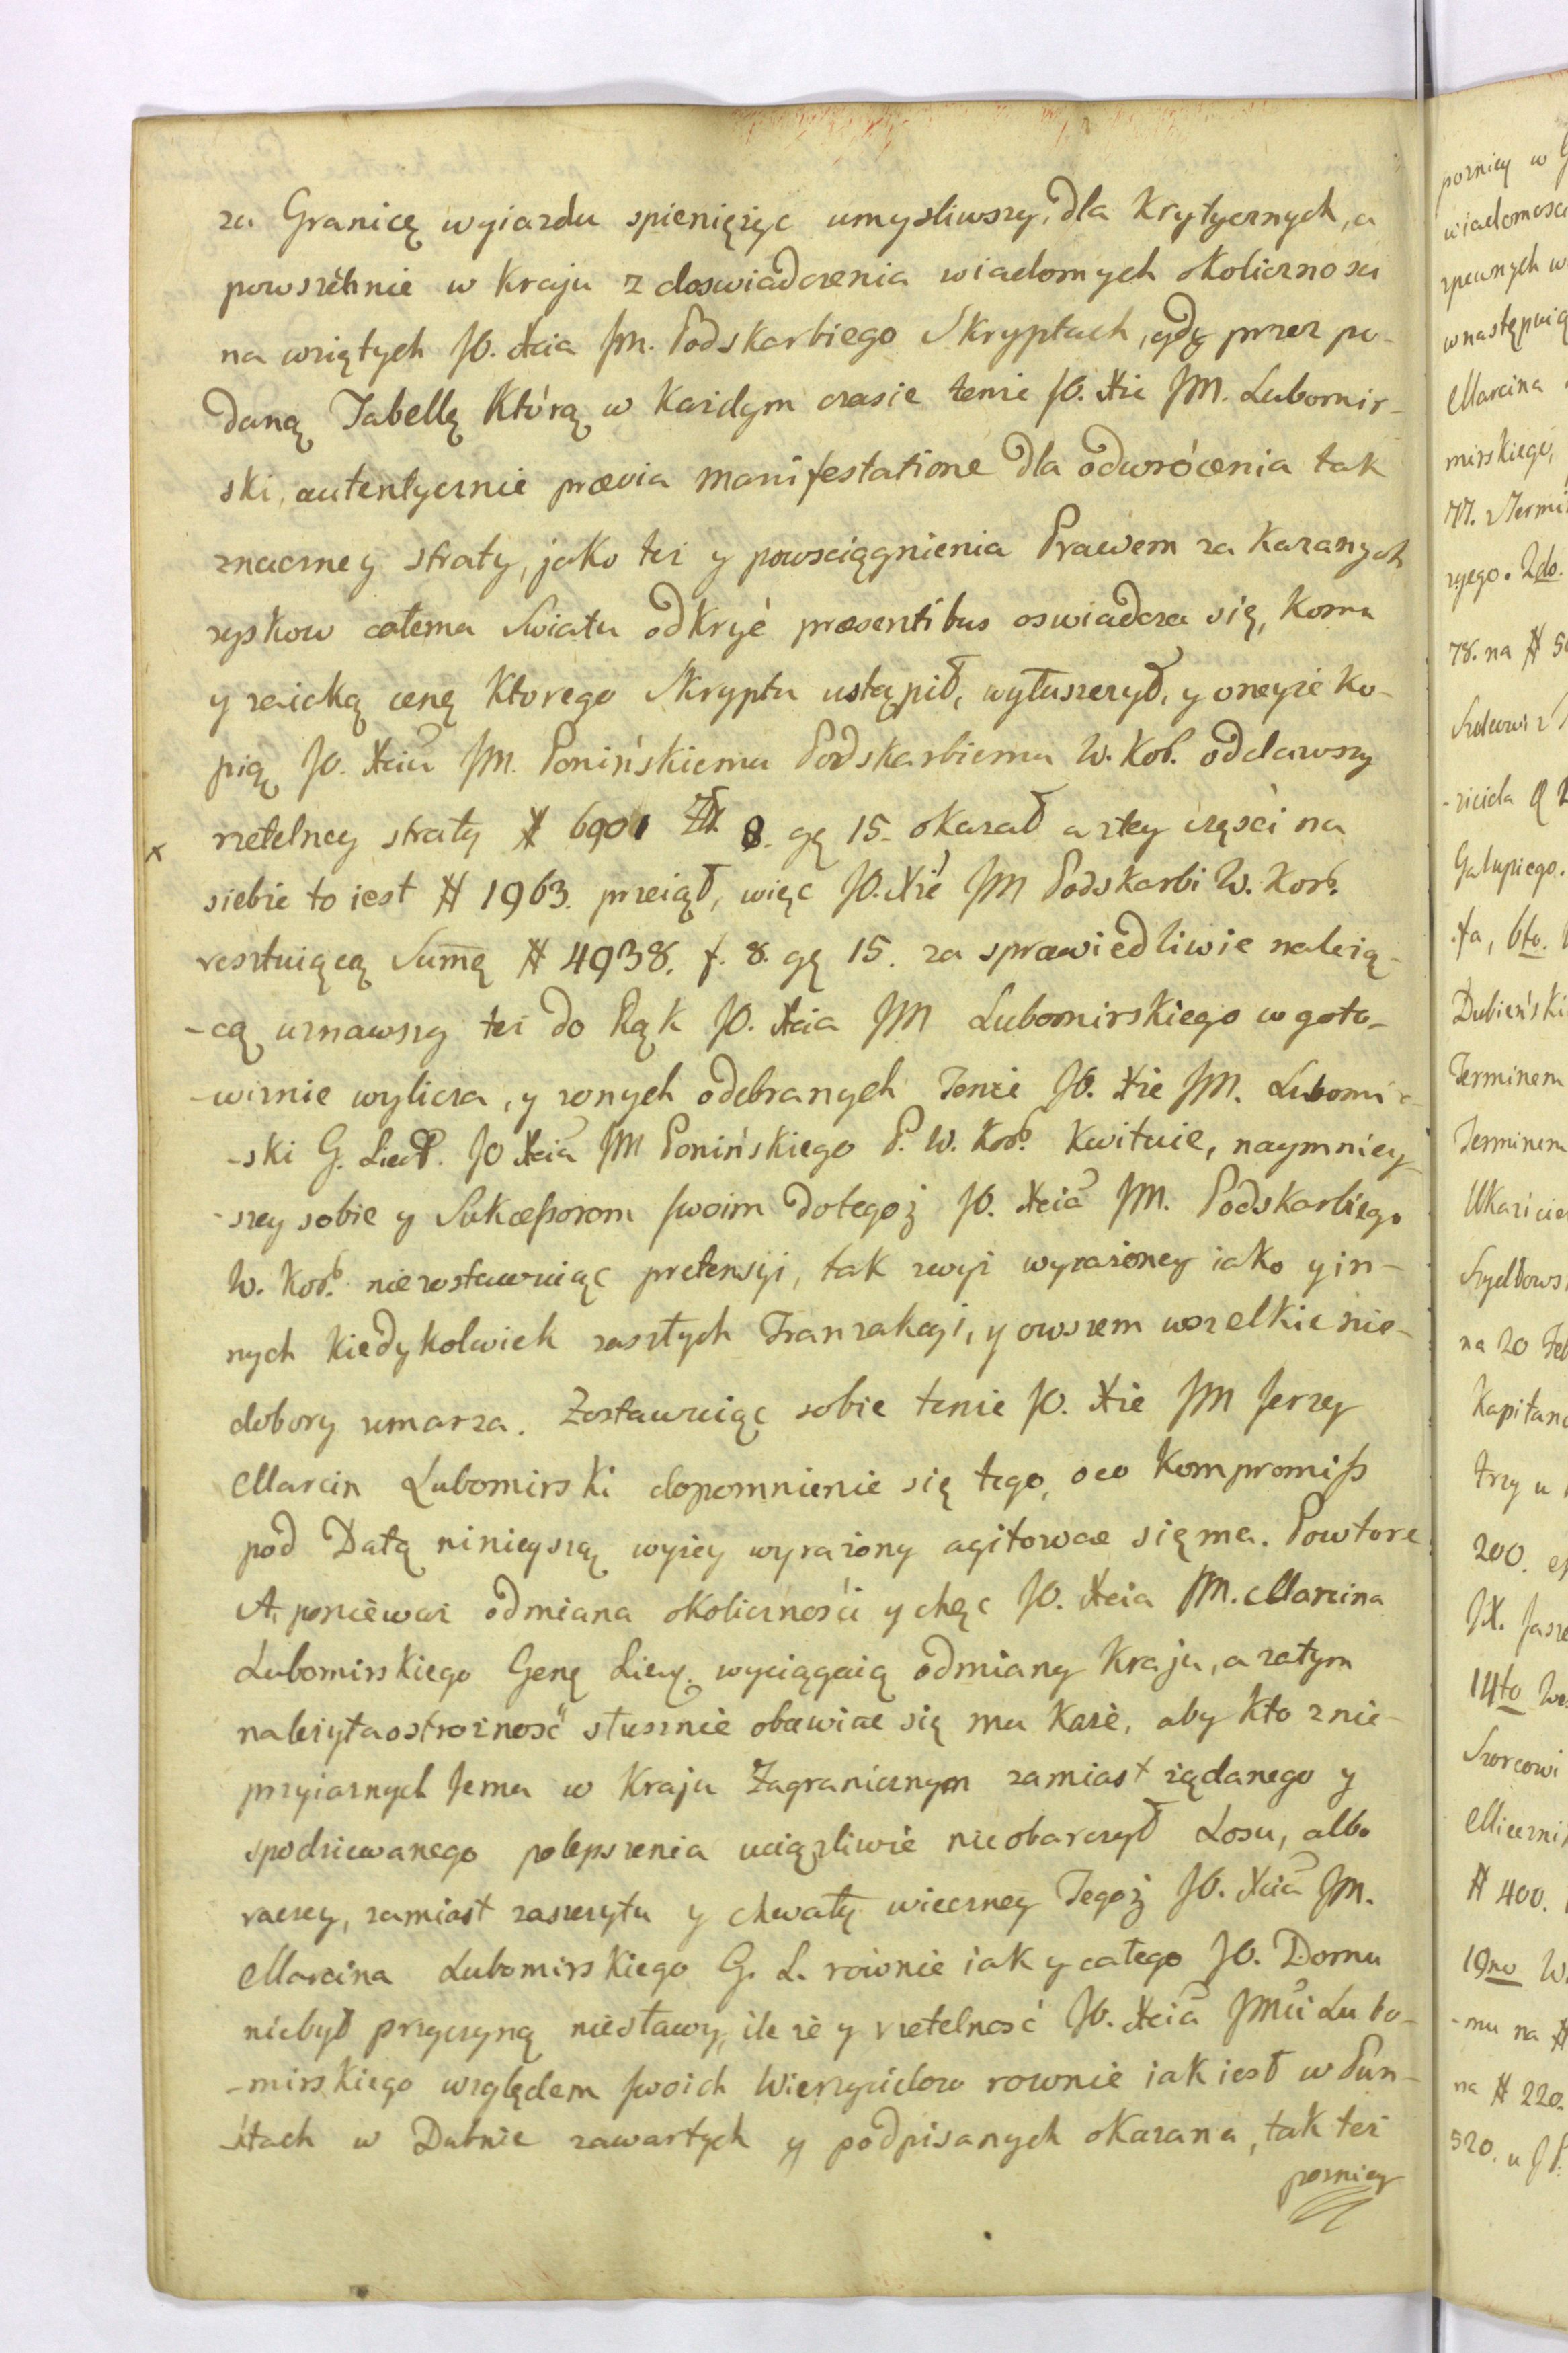 za Granicę wyiazdu spieniężyc umysliwszy, dla Krytycznych, a
powszéchnie w Kraju z doswiadczenia wiadomych okolicznosci
na wziętych JO. Xcia JM. Podskarbiego Skryptach, gdy przez po-
daną Tabellę Którą w Kazdym czasie tenze JO. Xże JM. Lubomir-
ski, autentycznie prævia manifestatione dla odwrócenia tak
znaczney straty, jako tez y powsciągnienia Prawem zakazanych
zyskow całemu Swiatu odkryć præsentibus oswiadcza się, Komu
y zaiaką cenę Ktorego Skryptu ustąpił, wytłuszczył, y oneyże Ko-
pią JO. Xciu JM. Ponińskiemu Podskarbiemu W. Kor. oddawszy
rzetelney straty # 6901 Zł. 8. gę 15. okazał a ztey częsci na
siebie to iest # 1963. przeiął, więc JO. Xże JM Podskarbi W. Kor.
resztuiącą Summę # 4938. f. 8. gę 15. za sprawiedliwie nalezą-
-cą uznawszy tez do Rąk JO. Xcia JM Lubomirskiego w goto-
-wiznie wylicza, y zonych odebranych Tenże JO. Xże JM. Lubomir-
-ski G. Lieut. JO Xcia JM Ponińskiego P. W. Kor. Kwituie, naymniey-
-szey sobie y Sukcessorom swoim dotegoż JO. Xcia JM. Podskarbiego
W. Kor. niezostawuiąc pretensyi, tak zwyż wyrazoney iako y in-
nych Kiedykolwiek zaszłych Tranzakcyi, y owszem wszelkie nie-
dobory umarza. Zostawuiąc sobie tenze JO. Xże JM Jerzy
Marcin Lubomirski dopomnienie się tego, oco Kompromiss
pod Datą ninieyszą wyżey wyrażony agitowac się ma. Powtore
A, poniewaz odmiana okolicznosci y chęc JO. Xcia JM. Marcina
Lubomirskiego Genę Liey. wyciągaią odmiany Kraju, a zatym
nalezyta ostrożność słusznie obawiac się mu Kaze, aby kto z nie-
przyiaznych Jemu w Kraju Zagranicznym zamiast ządanego y
spodziewanego polepszenia uciązliwie nieobarczył Losu, albo
raczey, zamiast zaszczytu y chwały wieczney Tegoż JO. Xcia JM.
Marcina Lubomirskiego G. L. rownie iak y całego JO. Domu
niebył przyczyną niesławy, ile ze y rzetelnosć JO. Xcia JMci Lubo-
-mirskiego względem swoich Wierzycielow rownie iak iest w Pun-
-ktach w Dubnie zawartych y podpisanych okazana, tak tez
pozniey